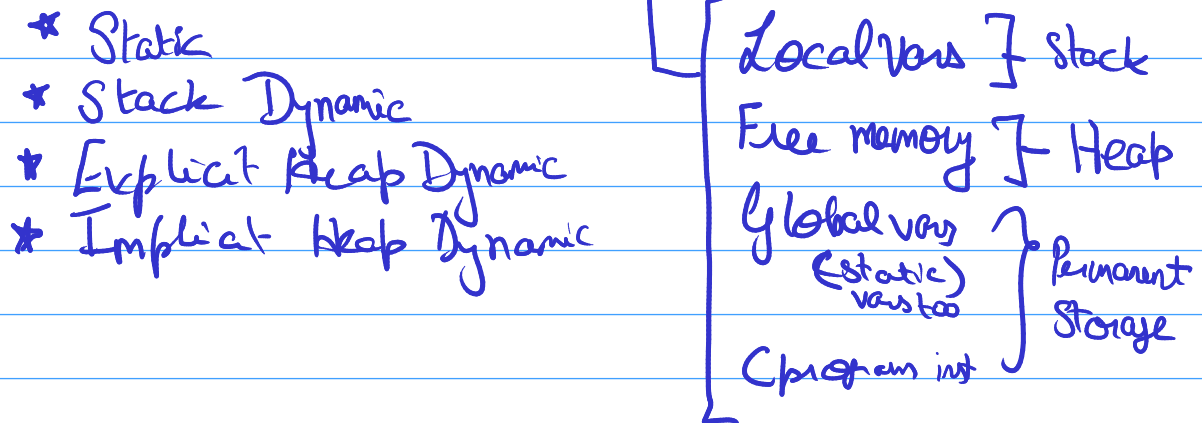 * Static
* Stack Dynamic
* Explicit Heap Dynamic
* Implicit Heap Dynamic
Local vars ] Stack
Free memory ] Heap
Global vars
(static)
vars too
C program inst
} Permanent
Storage